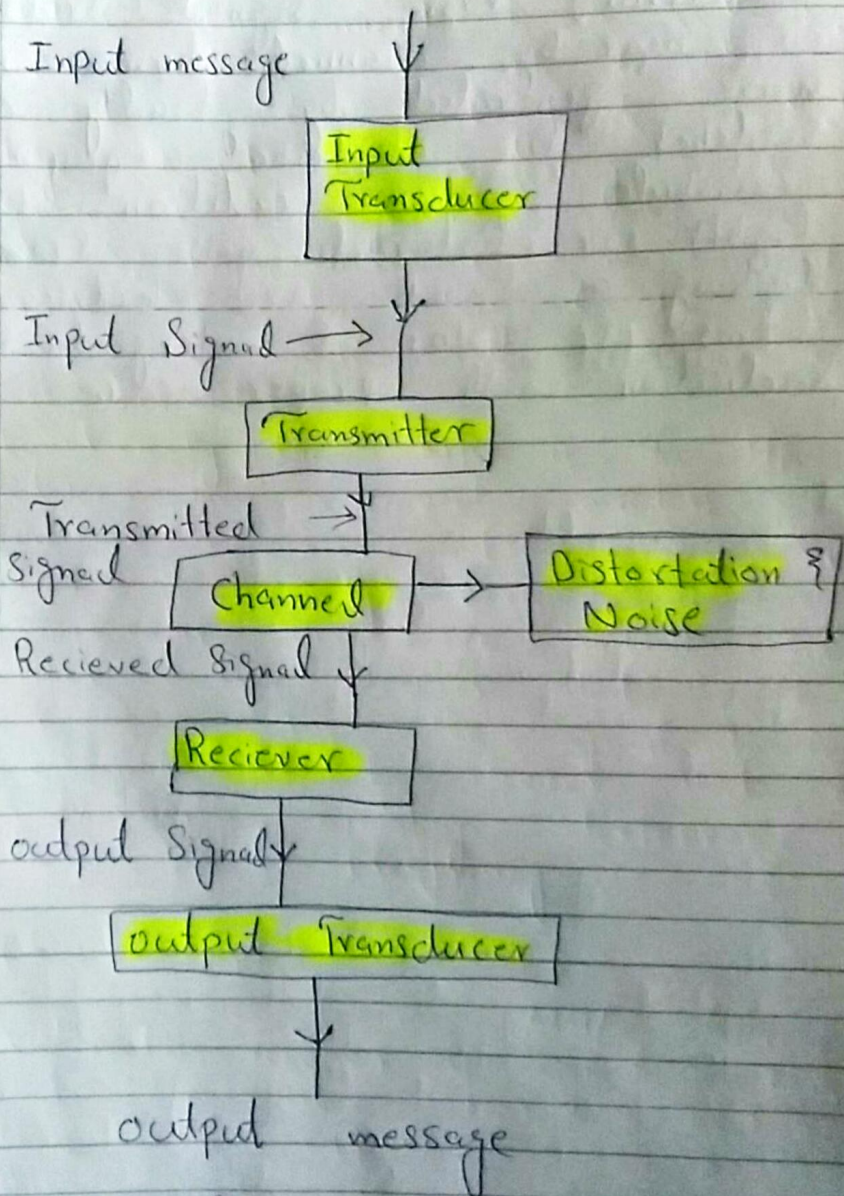 Input message
Input
Transducer
Input Signal
Transmitter
Transmitted
Signal
Channel
Distortation &
Noise
Recieved Signal
Reciever
output Signal
output Transducer
output message